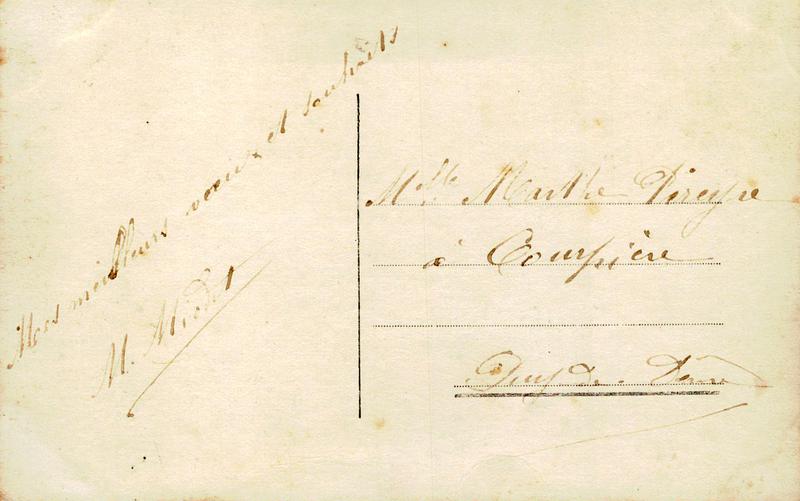 Mes meilleurs voeux et souhaits
M. Miodet
Mlle Marthe Pireyre
à Courpière
Puy de Dôme